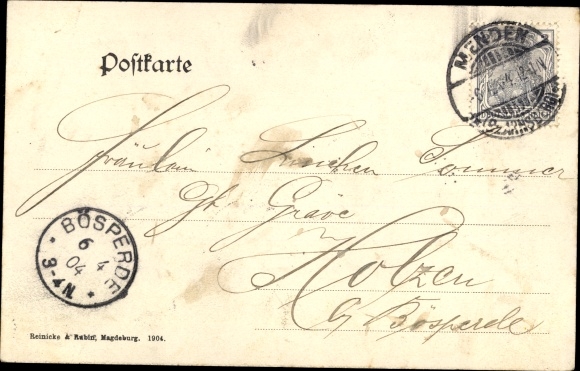 Postkarte
MENDEN
Fräulein Linchen Sommer
Gt. Gräve
Holzen
b/ Bösperde
BÖSPERDE
6 4
04
3-4N
Reinicke & Rubin, Magdeburg. 1904.